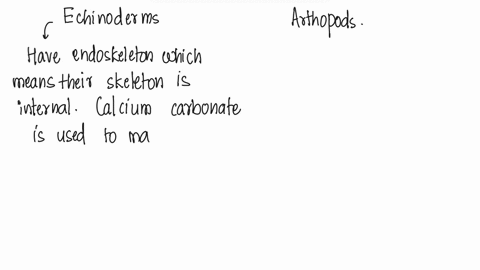 Echinoderms
Arthopods.
Have endoskeleton which
means their skeleton is
internal. Calcium carbonate
is used to ma